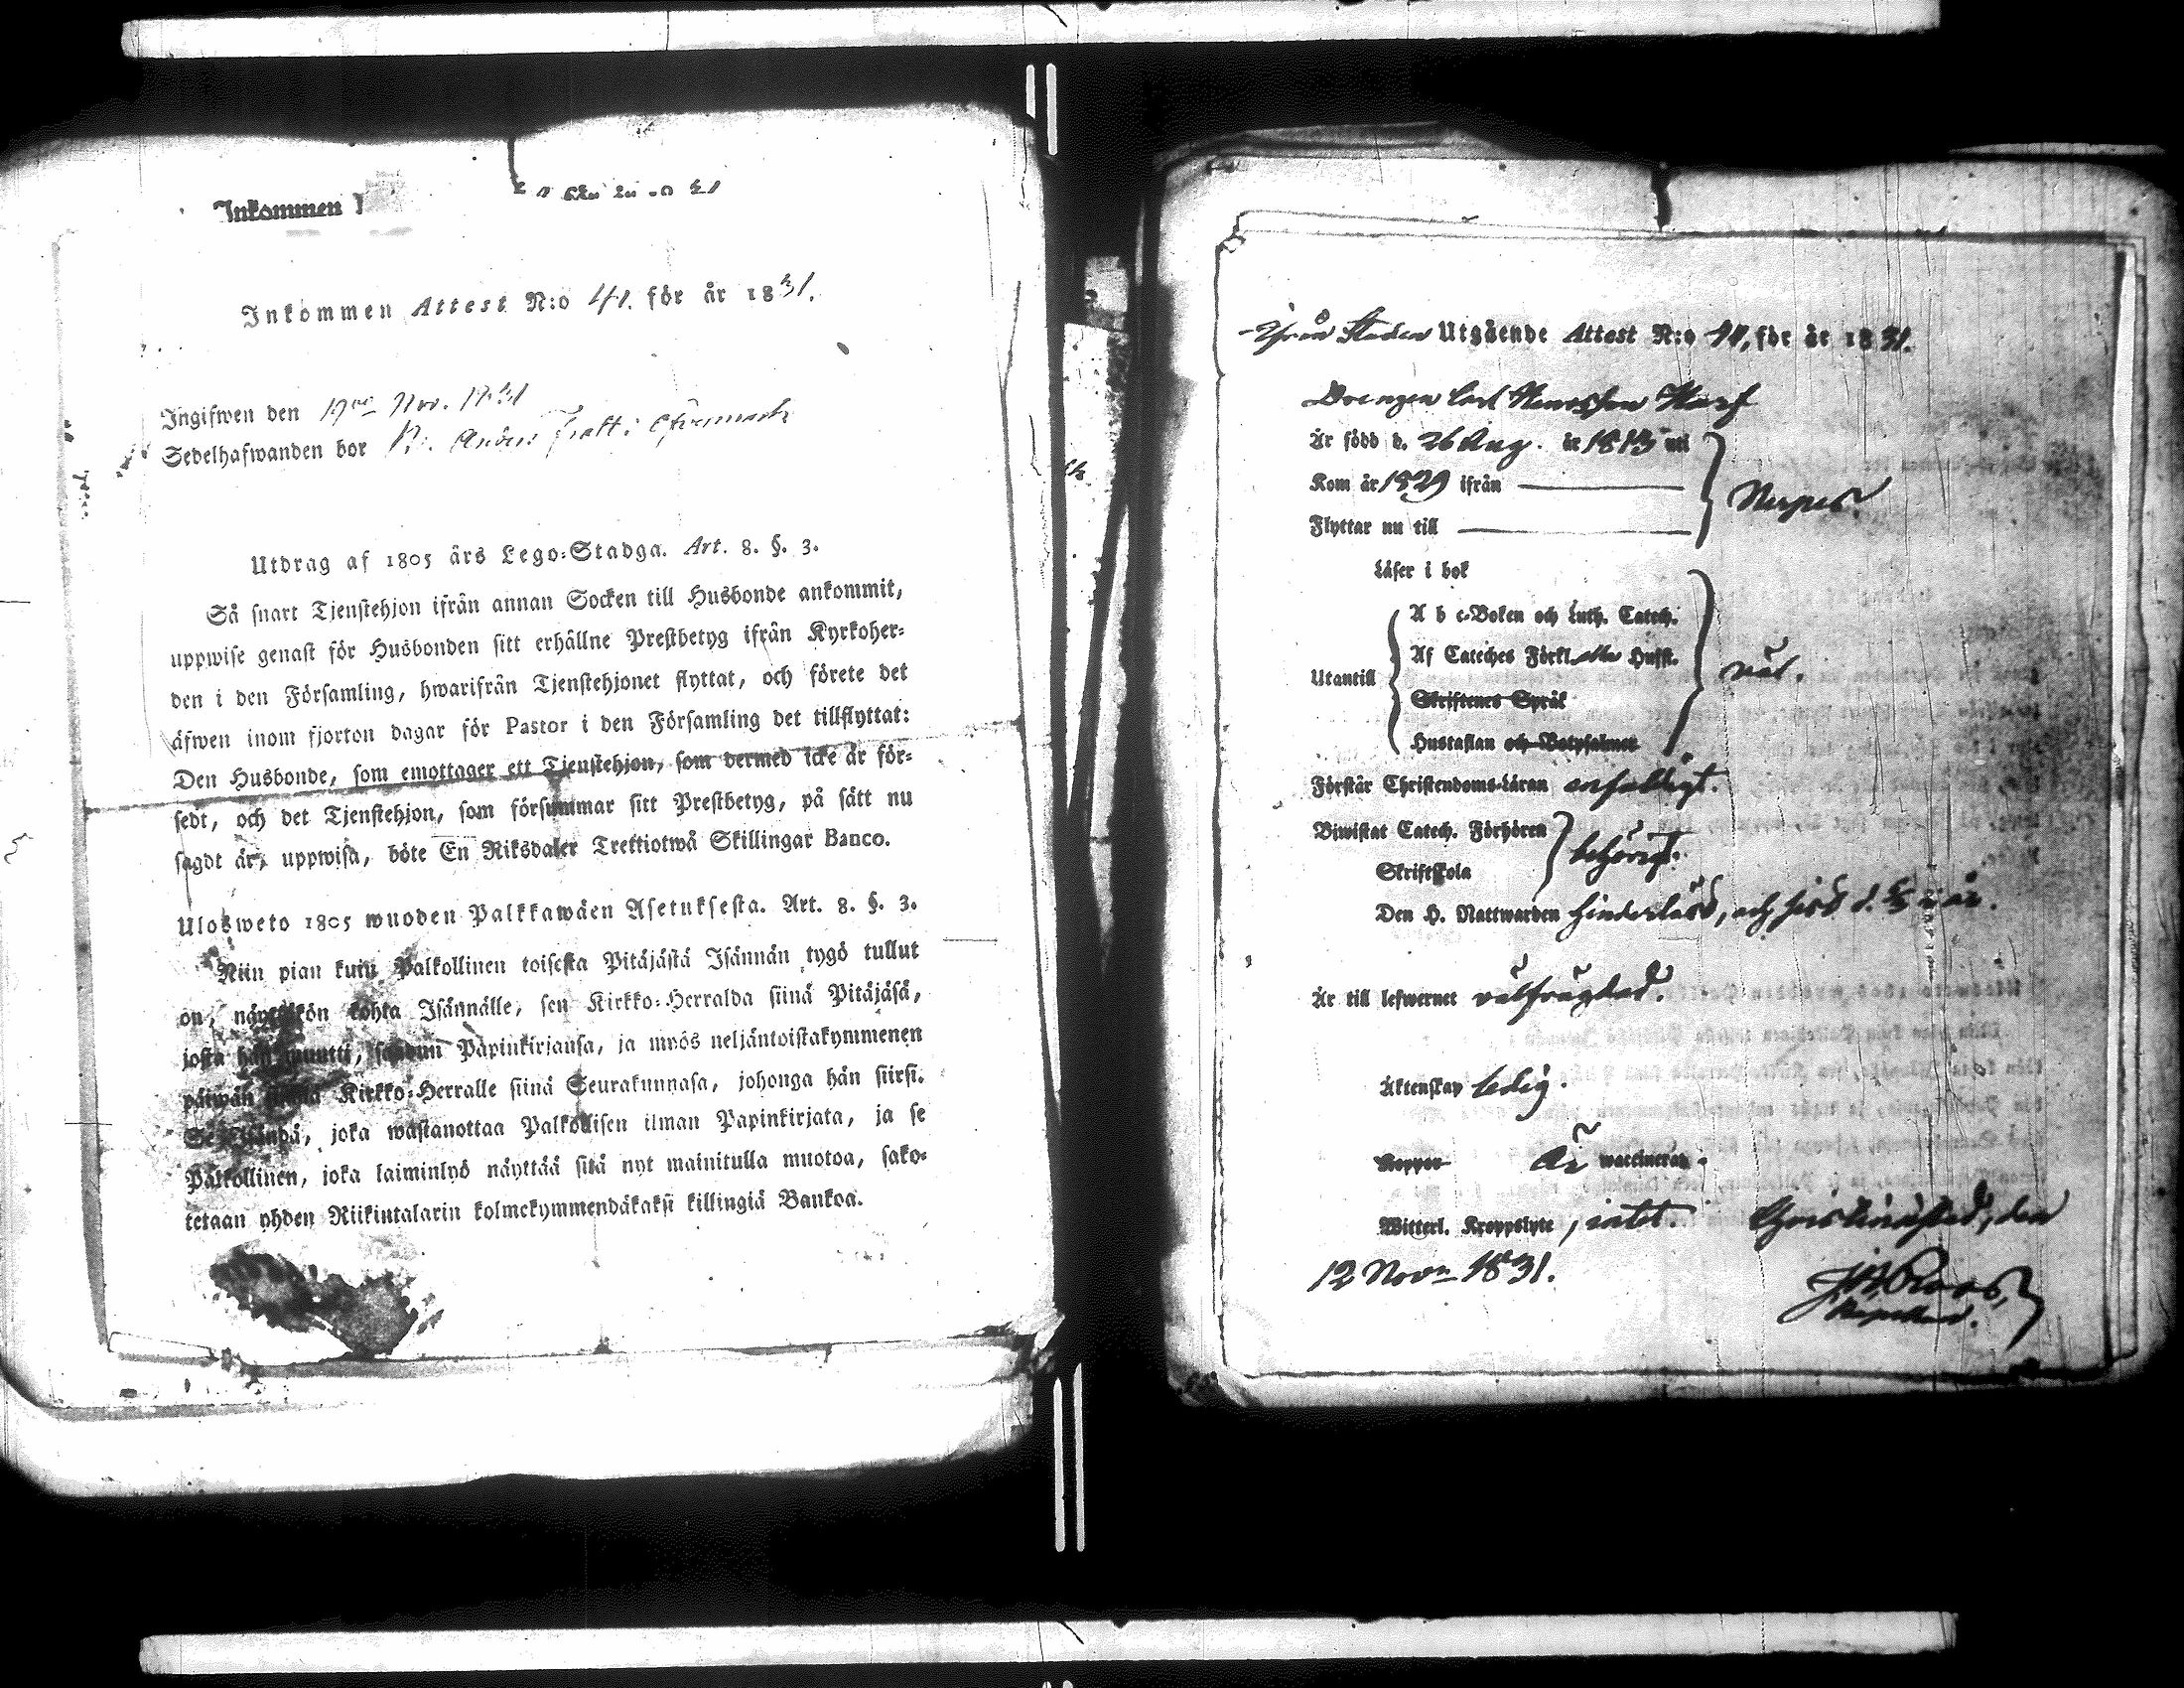 Inkommen
Inkommen Attest N:o 41. för år 1831.
Ingifwen den 19de Nov. 1831
Sedelhafwanden bor Anders i Öfvermark
Utdrag af 1805 års Lego-Stadga. Art. 8. §. 3.
Så snart Tjenstehjon ifrån annan Socken till Husbonde ankommit,
uppwise genast för Husbonden sitt erhållne Prestbetyg ifrån Kyrkoher-
den i den Församling, hwarifrån Tjenstehjonet flyttat, och förete det
äfwen inom fjorton dagar för Pastor i den Församling det tillflyttat:
Den Husbonde, som emottager ett Tjenstehjon, som dermed icke är för-
sedt, och det Tjenstehjon, som försummar sitt Prestbetyg, på sätt nu
sagdt är, uppwisa, böte En Riksdaler Trettiotwå Skillingar Banco.
Ulosweto 1805 wuoden Palkkawäen Asetuksesta. Art. 8. §. 3.
Niin pian kuin Palkollinen toisesta Pitäjästä Isännän tygö tullut
on, näyttäkön kohta Isännälle, sen Kirkko-Herralda siinä Pitäjäsä,
josta hän muutti, saadun Papinkirjansa, ja myös neljäntoistakymmenen
päiwän sisällä Kirkko-Herralle siinä Seurakunnasa, johonga hän siirsi.
Se Isändä, joka wastanottaa Palkollisen ilman Papinkirjata, ja se
Palkollinen, joka laiminlyö näyttää sitä nyt mainitulla muotoa, sako-
tetaan yhden Riikintalarin kolmekymmendäkaksi killingiä Bankoa.
Ifrån Staden Utgående Attest N:o för år 1831.
Drengen Carl
Är född d. 26 Aug. år 1813 uti
Kom år 1829 ifrån
Flyttar nu till
Nerpes.
Läser i bok
Utantill
A b c-Boken och Luth. Catech.
Af Cateches Förkl. alla Hufst.
Skriftenes Språk
Hustaflan och Botpsalmer
väl.
Förstår Christendoms-Läran enfaldigt.
Biwistat Catech. Förhören
Skriftskola
behörigt.
Den H. Nattwarden hinderlöst, och sist d. i år.
Är till lefwernet välfrägdad.
Äktenskap ledig.
Koppor Är waccinerad.
Witterl. Kroppslyte, intet. Christinæstad, den
12 Nov. 1831.
J. A. Roos,